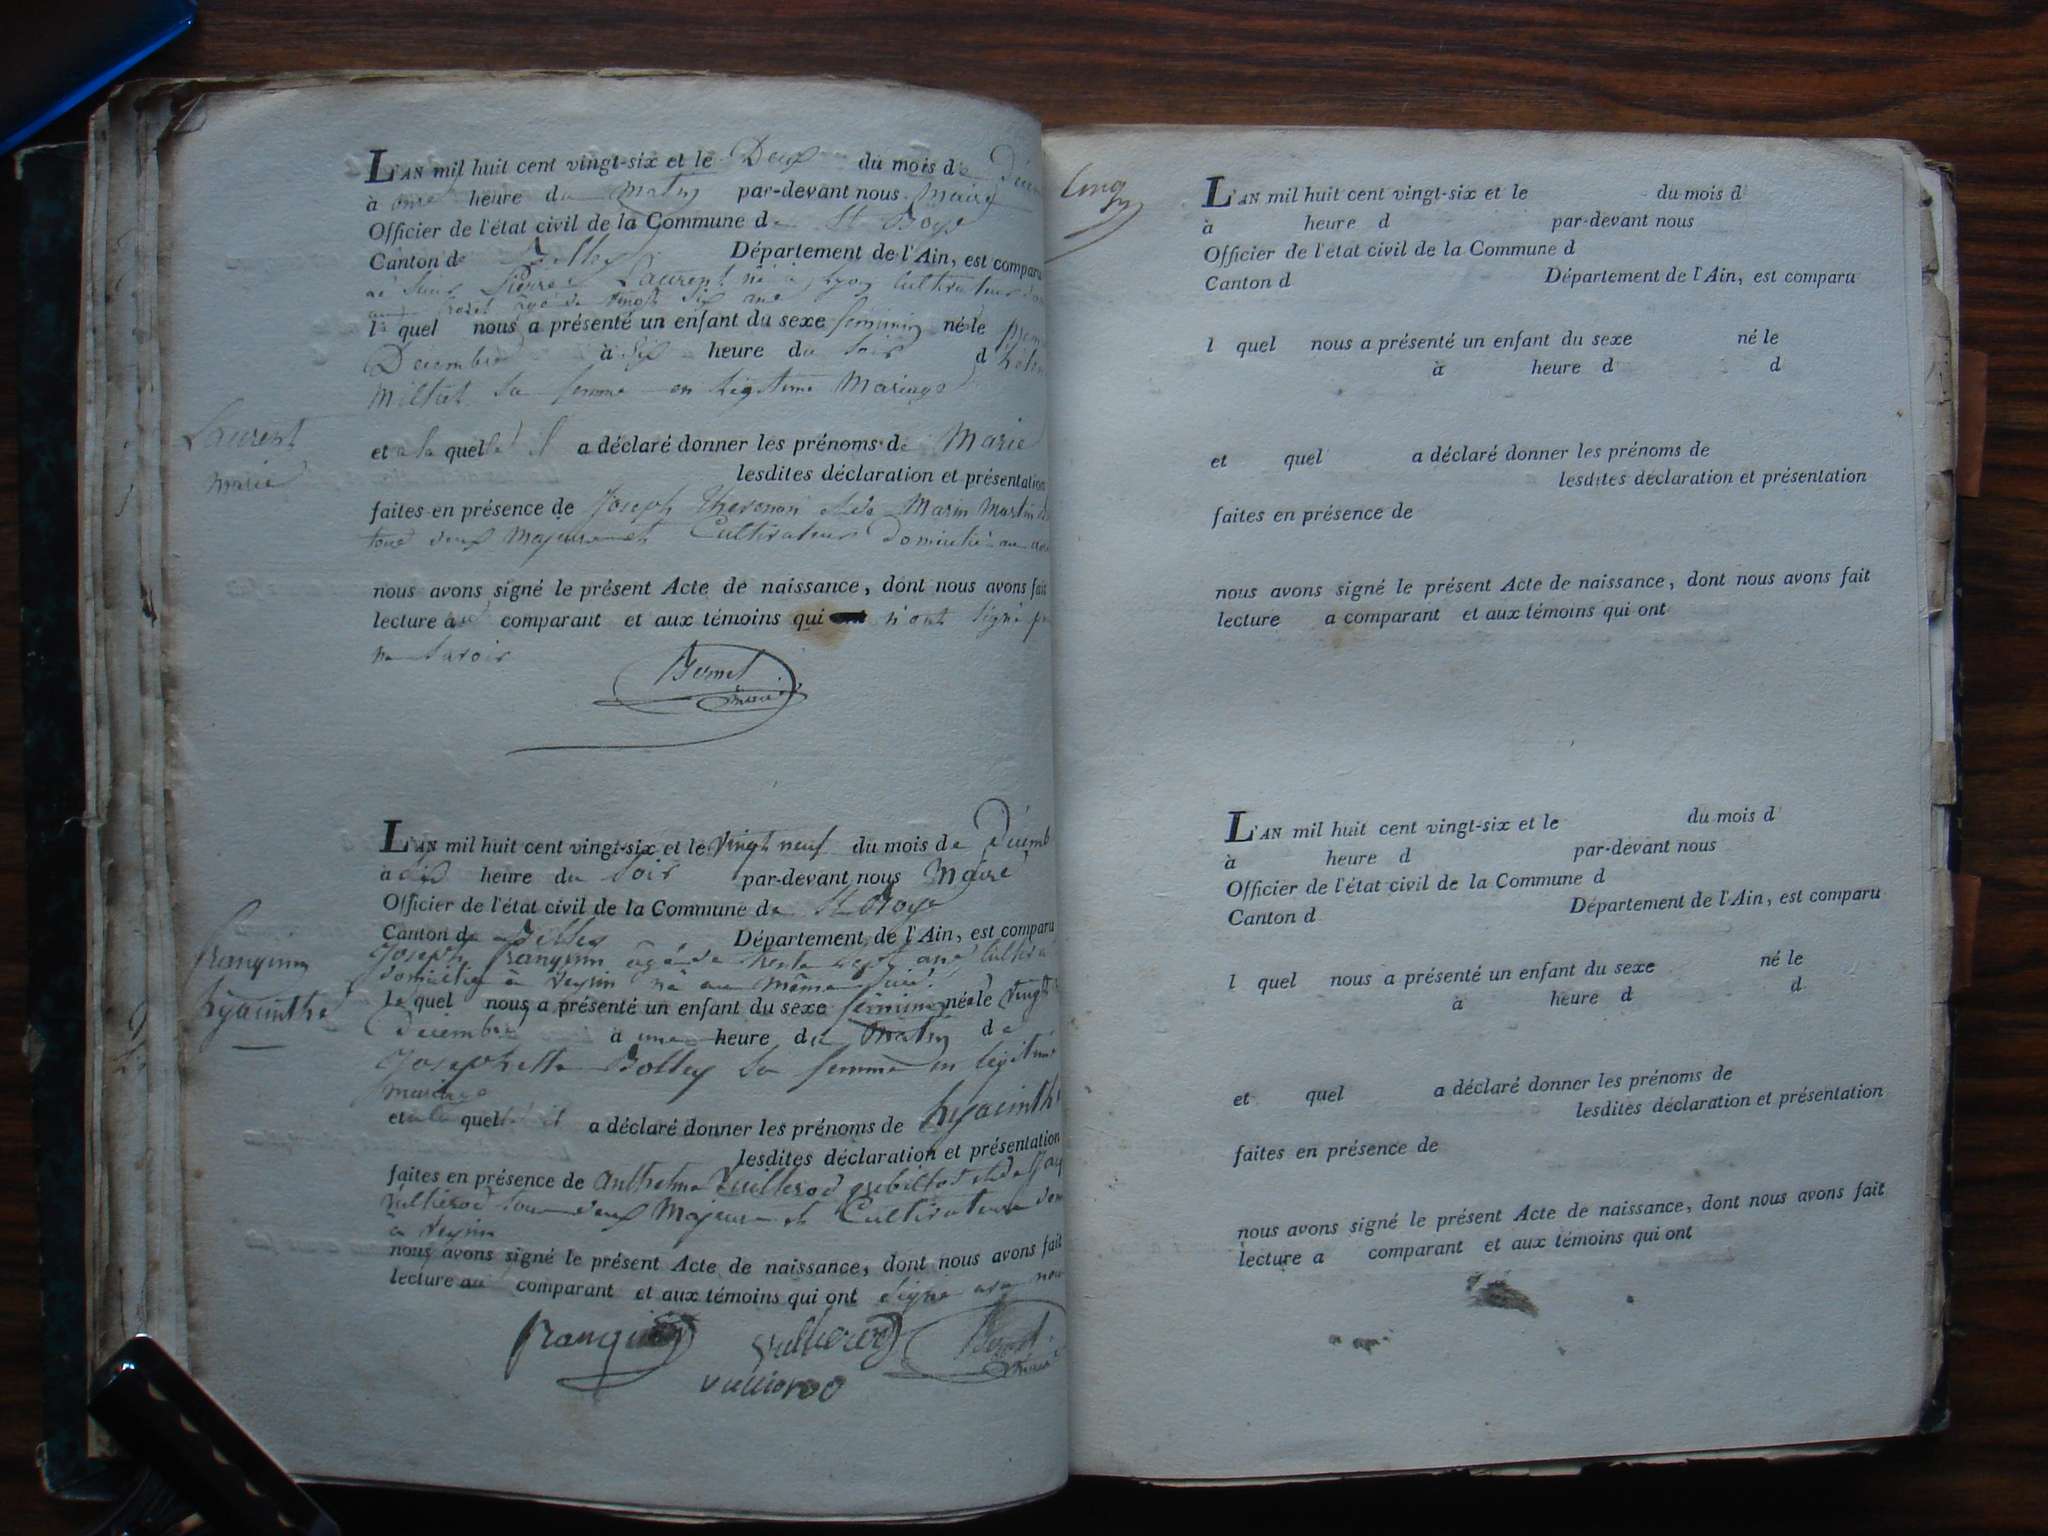 L'AN mil huit cent vingt-six et le Deux du mois de
à onze heure du matin par-devant nous Maire
Officier de l'état civil de la Commune de St Boys
Canton de Belley Département de l'Ain, est comparu
Le Sieur Pierre Laurent né à Lyon Cultivateur
âgé de vingt six ans
le quel nous a présenté un enfant du sexe feminin né le
Decembre à six heure du soir d
Milliet sa femme en legitime Mariage
Laurent
Marie
et a la quelle il a déclaré donner les prénoms de Marie
lesdites déclaration et présentation
faites en présence de Joseph Thevenon et de Marin Martin
tous deux Majeurs et Cultivateurs Domicilié au
nous avons signé le présent Acte de naissance, dont nous avons fait
lecture au comparant et aux témoins qui n'ont signé
ne savoir
maire
L'AN mil huit cent vingt-six et le vingt neuf du mois de Décemb
à six heure du soir par-devant nous Maire
Officier de l'état civil de la Commune de St Boys
Canton de Belley Département de l'Ain, est comparu
franquin
hyacinthe
Joseph franquin agé de trente sept ans Cultiva
domicilié à Veyrin né au même lieu
Le quel nous a présenté un enfant du sexe féminin née le vingt
Decembre à une heure du Matin de
Josephette Bolley sa femme en légitime
mariage
et a la quelle il a déclaré donner les prénoms de hyacinthe
lesdites déclaration et présentation
faites en présence de Anthelme Vuillerod et de
Vuillerod tous deux Majeurs et Cultivateurs dom
à Veyrin
nous avons signé le présent Acte de naissance, dont nous avons fait
lecture au comparant et aux témoins qui ont signé avec nous
franquin vuillerod
vuillerod
Cinq
L'AN mil huit cent vingt-six et le du mois d
à heure d par-devant nous
Officier de l'état civil de la Commune d
Canton d Département de l'Ain, est comparu
l quel nous a présenté un enfant du sexe né le
à heure d d
et quel a déclaré donner les prénoms de
lesdites déclaration et présentation
faites en présence de
nous avons signé le présent Acte de naissance, dont nous avons fait
lecture a comparant et aux témoins qui ont
L'AN mil huit cent vingt-six et le du mois d
à heure d par-devant nous
Officier de l'état civil de la Commune d
Canton d Département de l'Ain, est comparu
l quel nous a présenté un enfant du sexe né le
à heure d d
et quel a déclaré donner les prénoms de
lesdites déclaration et présentation
faites en présence de
nous avons signé le présent Acte de naissance, dont nous avons fait
lecture a comparant et aux témoins qui ont